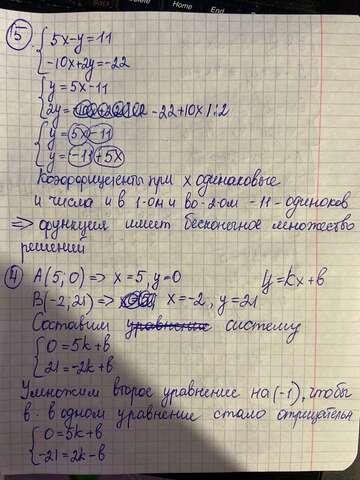 Home End
5 5x-y=11
-10x+2y=-22
y=5x-11
2y= -22+10x |:2
y=5x-11
y=-11+5x
Коэффициенты при x одинаковые
и числа и в 1-ом и во 2-ом -11-одинаков
=> функция имеет бесконечное множество
решений
4 A(5;0) => x=5, y=0 y=kx+b
B(-2;21) => x=-2, y=21
Составим уравнение систему
0=5k+b
21=-2k+b
Умножим второе уравнение на (-1), чтобы
в одном уравнение стало отрицательн
0=5k+b
-21=2k-b